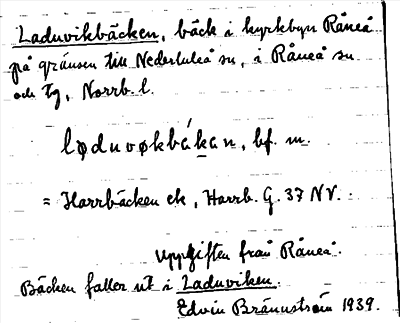 Laduvikbäcken, bäck i kyrkbyn Råneå
på gränsen till Nederluleå sn, i Råneå sn
och tg, Norrb. l.
lǫduvǫkbákan, bf. m.
= Harrbäcken ek, Harrb. G. 37 NV.
Uppgiften från Råneå.
Bäcken faller ut i Laduviken.
Edvin Brännström 1939.